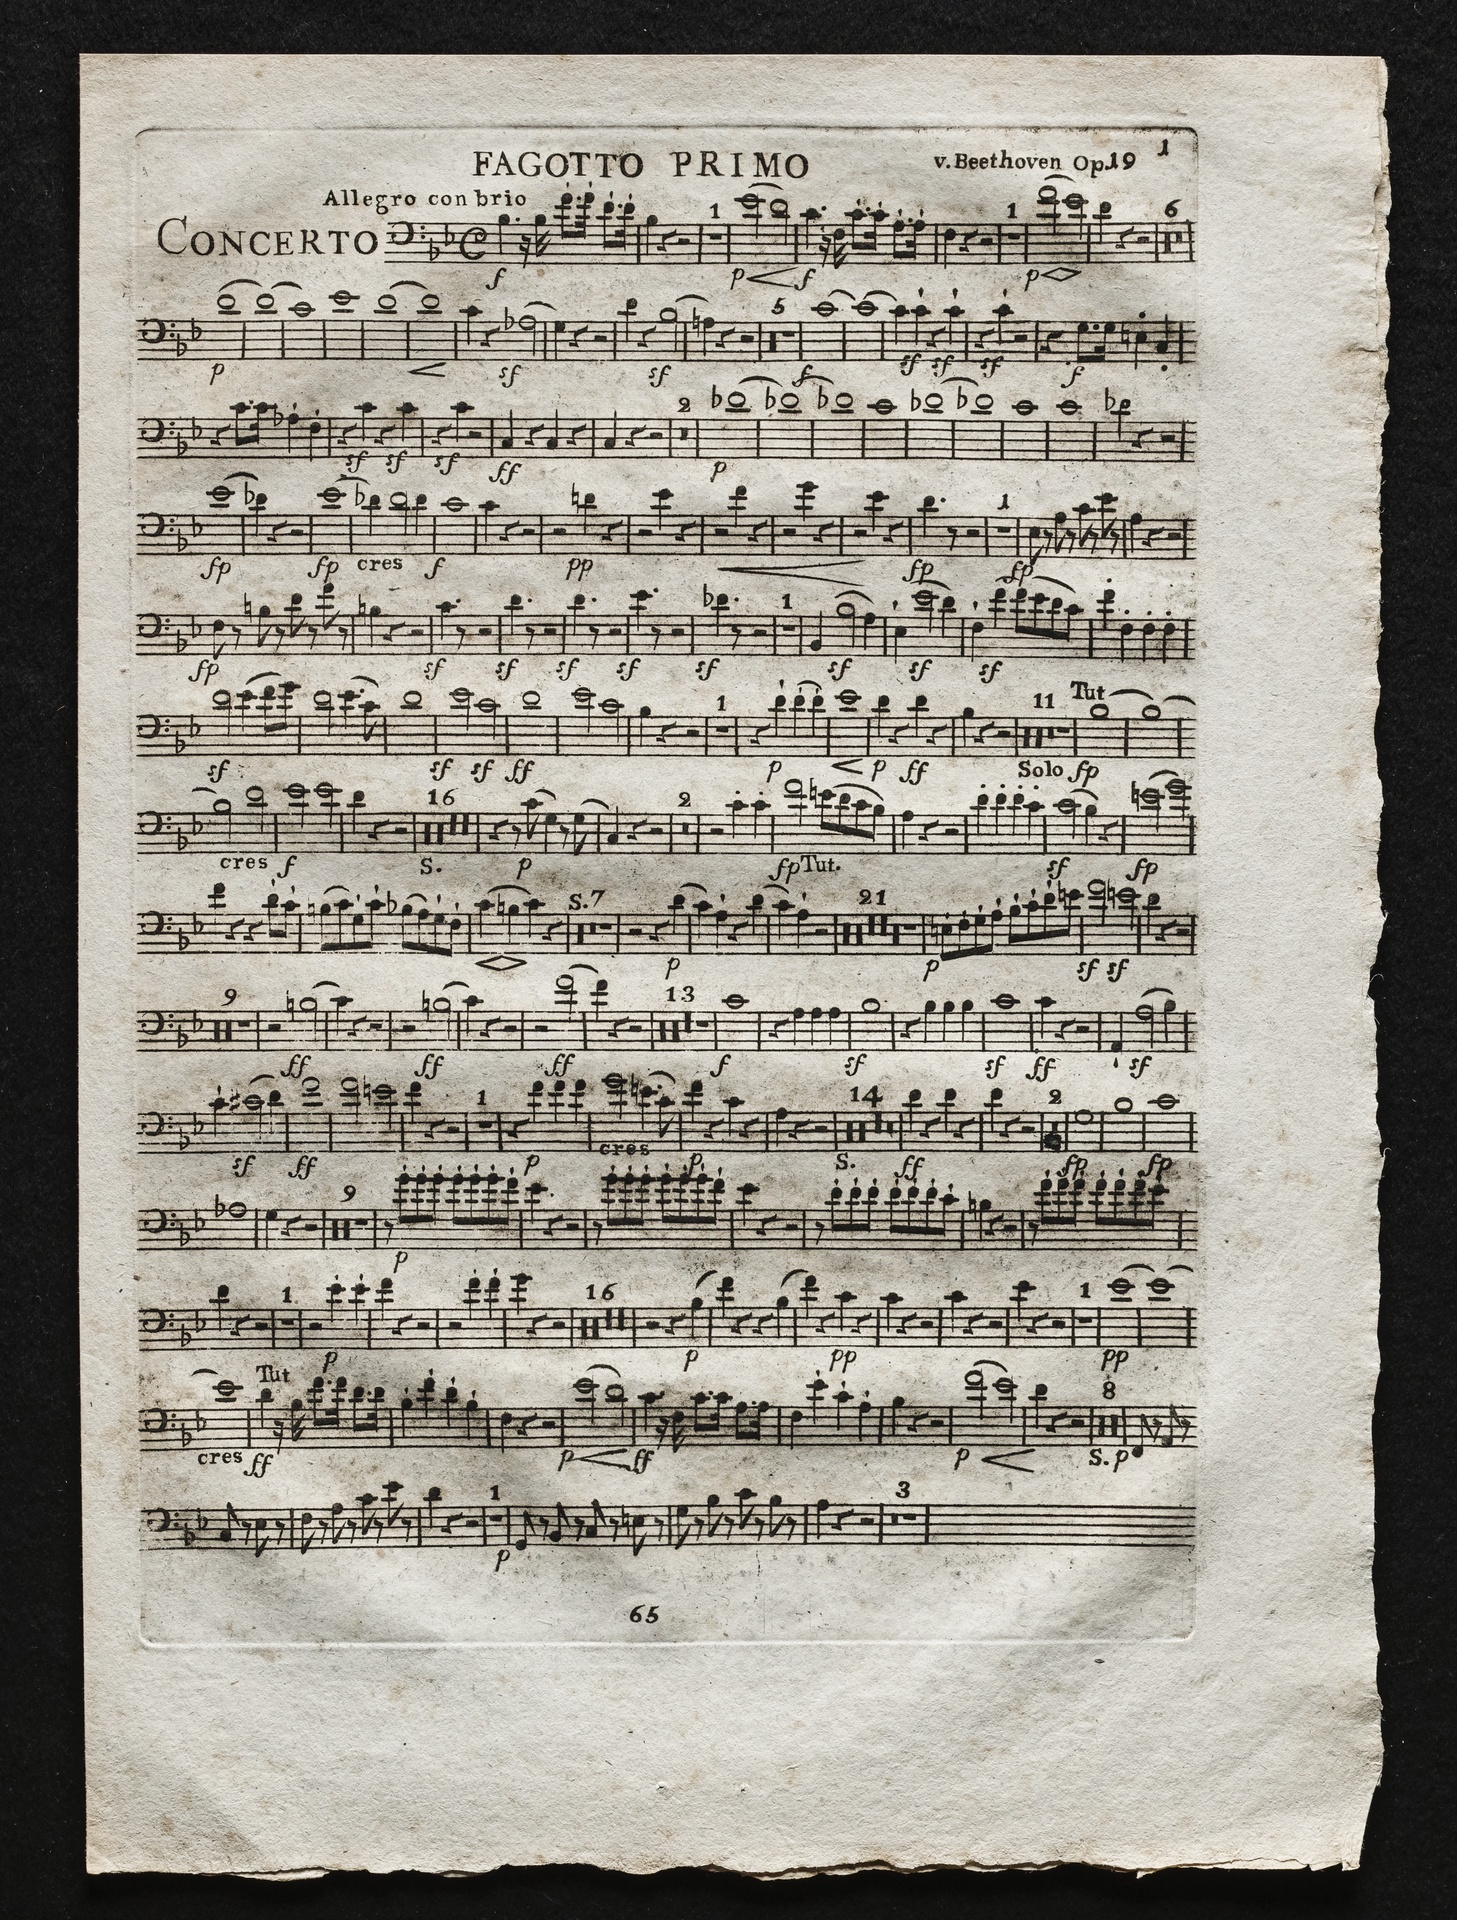 FAGOTTO PRIMO
v. Beethoven Op.19
1
Allegro con brio
CONCERTO
1 1 6
f p f p
5
p sf sf f sf sf sf f
2
sf sf sf ff p
1
fp fp cres f pp fp fp
1
fp sf sf sf sf sf sf sf sf
1 11 Tut
sf sf sf ff p p ff Solo fp
16 2
cres f S. p fp Tut. sf fp
S. 7 21
p p sf sf
9 13
ff ff ff f sf sf ff sf
1 14 2
sf ff p cres p S. ff fp fp
9
p
1 16 1
p p pp pp
Tut 8
cres ff p ff p S. p
1 3
p
65